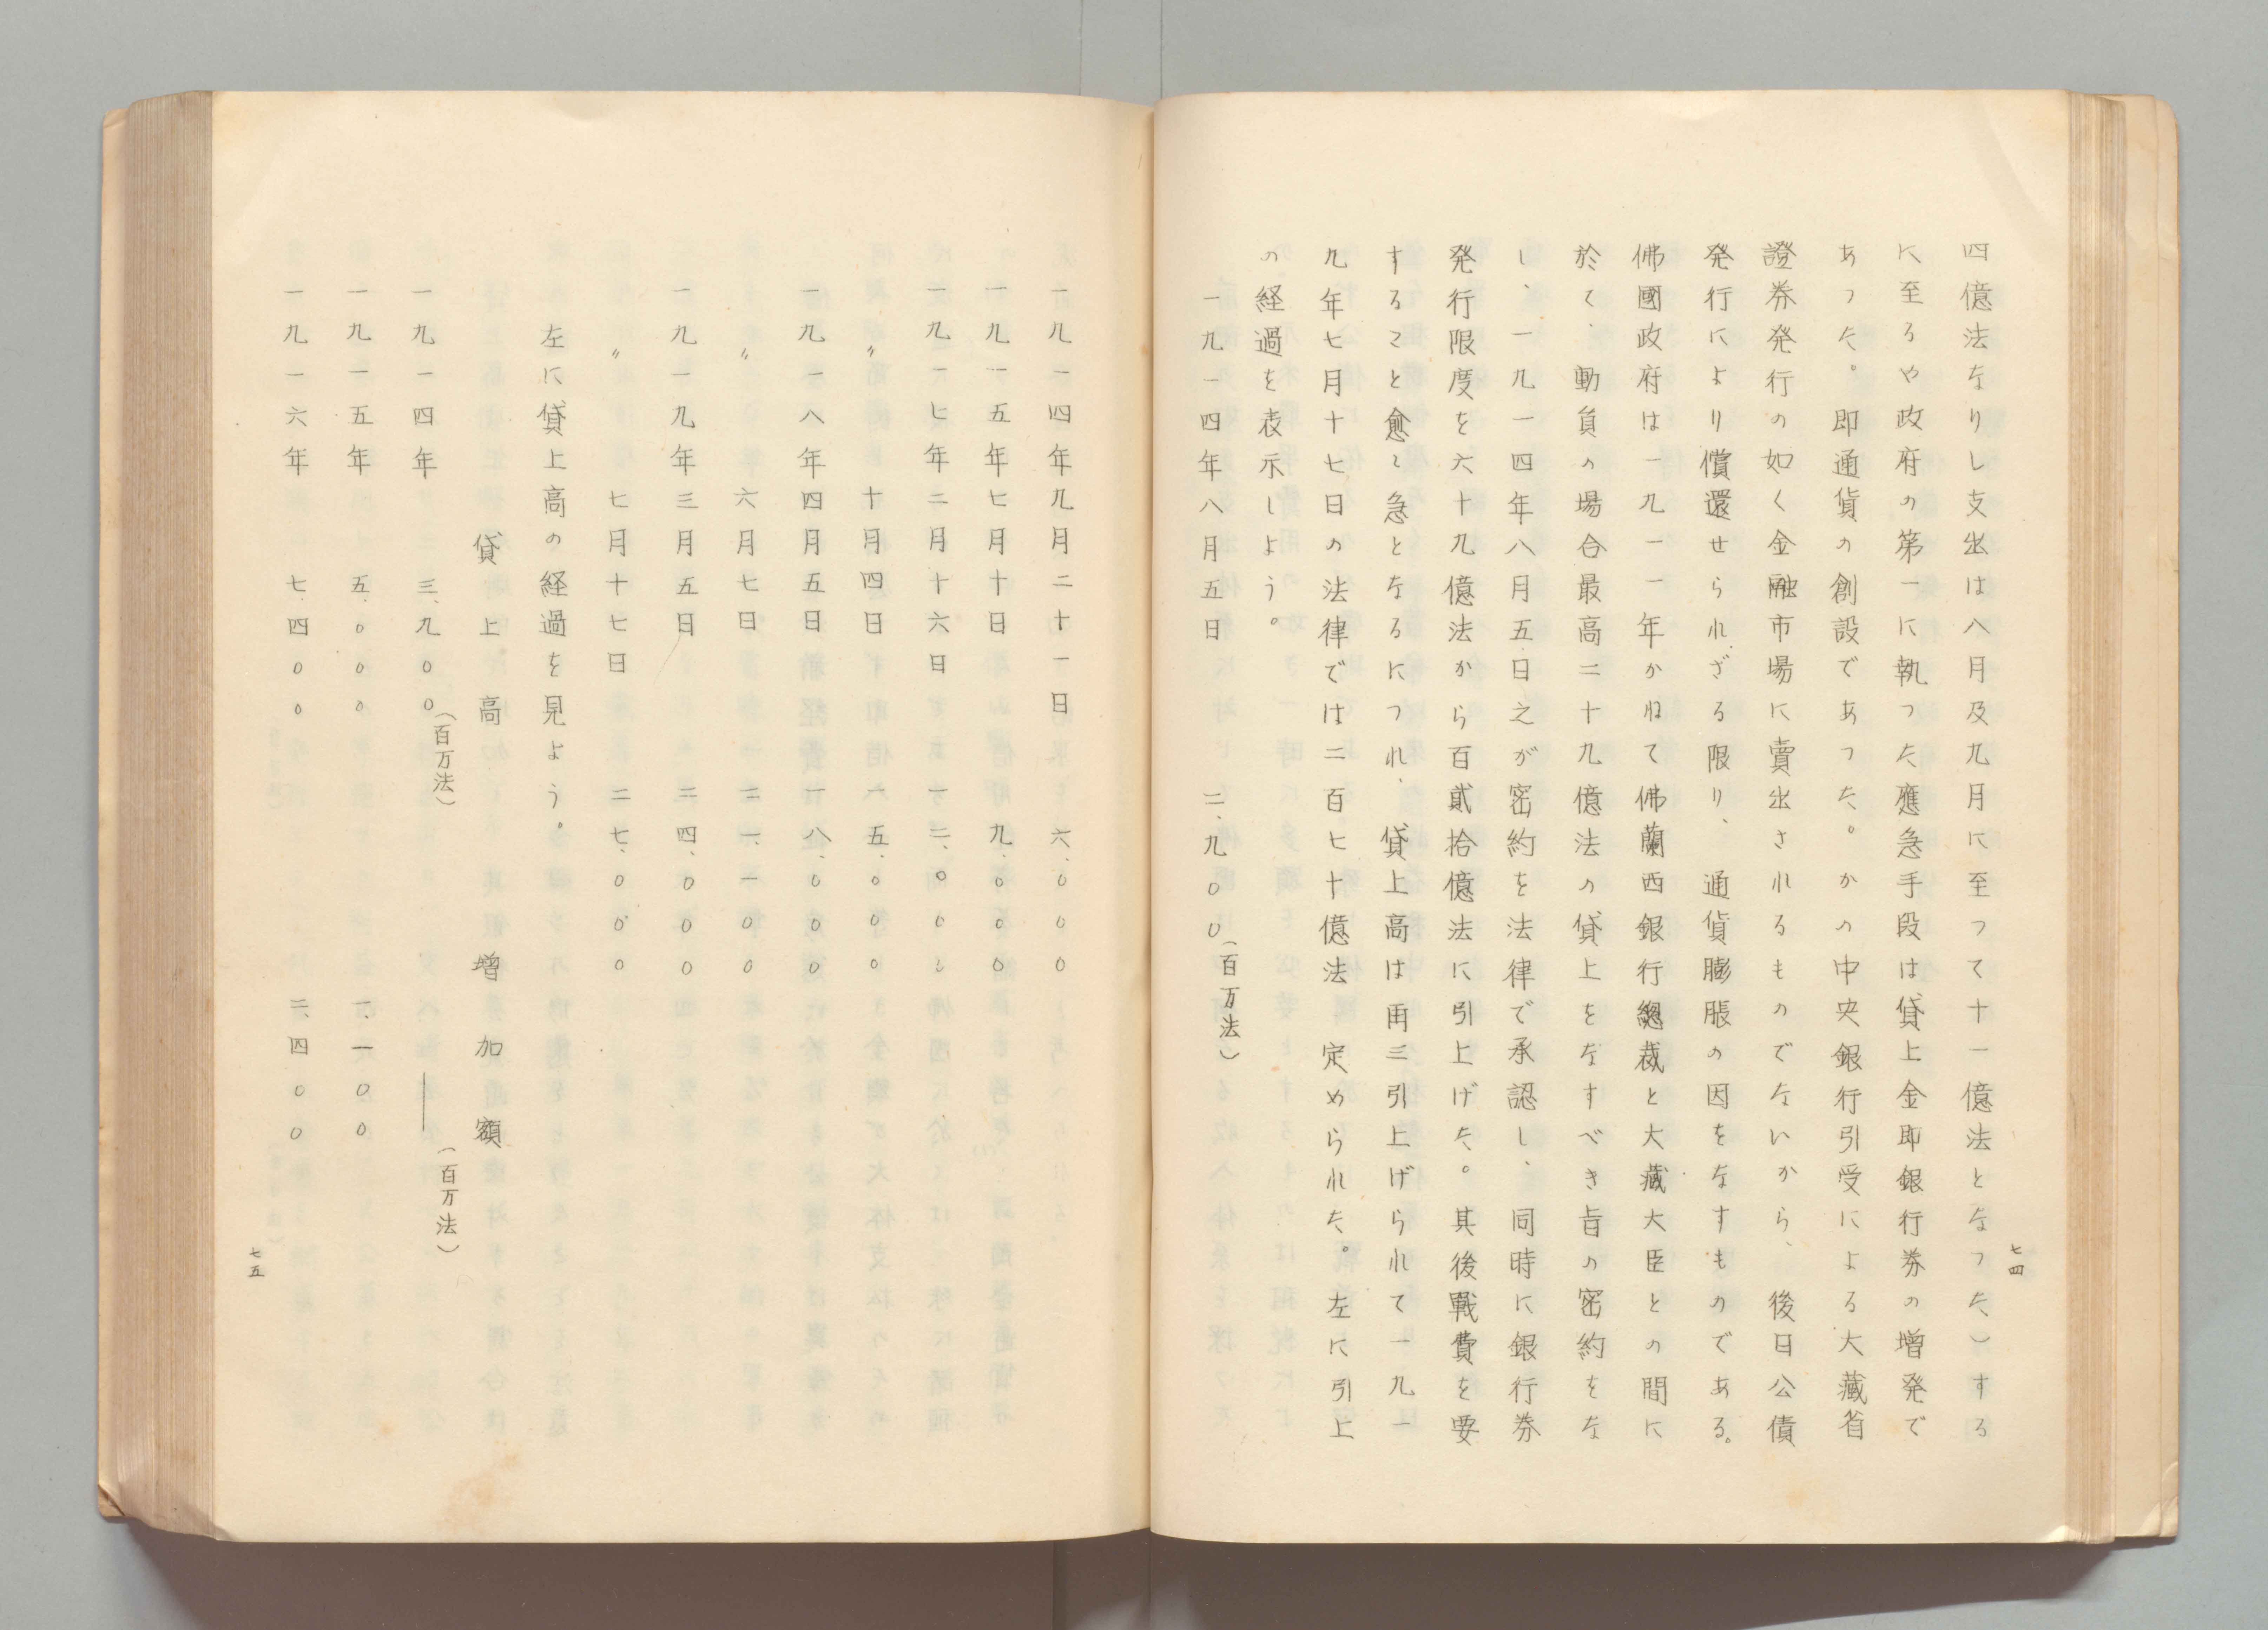 四億法なりし支出は八月及九月に至つて十一億法となつた、)する
に至るや政府の第一に執つた應急手段は貸上金即銀行券の増発で
あつた。即通貨の創設であつた。かの中央銀行引受による大藏省
證券発行の如く金融市場に賣出されるものでないから、後日公債
発行により償還せられざる限り、通貨膨脹の因をなすものである。
佛國政府は一九一一年かねて佛蘭西銀行總裁と大藏大臣との間に
於て、動員の場合最高二十九億法の貸上をなすべき旨の密約をな
し、一九一四年八月五日之が密約を法律で承認し、同時に銀行券
発行限度を六十九億法から百貳拾億法に引上げた。其後戰費を要
すること愈〻急となるにつれ、貸上高は再三引上げられて一九一
九年七月十七日の法律では二百七十億法 定められた。左に引上
の経過を表示しよう。
一九一四年八月五日 二、九〇〇(百万法)
七四
一九一四年九月二十一日 六、〇〇〇
一九一五年七月十日 九、〇〇〇
一九一七年二月十六日 一二、〇〇〇
〃 十月四日 一五、〇〇〇
一九一八年四月五日 一八、〇〇〇
〃 六月七日 二一、一〇〇
一九一九年三月五日 二四、〇〇〇
〃 七月十七日 二七、〇〇〇
左に貸上高の経過を見よう。
貸上高 増加額
一九一四年 三、九〇〇(百万法) ―(百万法)
一九一五年 五、〇〇〇 一、一〇〇
一九一六年 七、四〇〇 二、四〇〇
七五